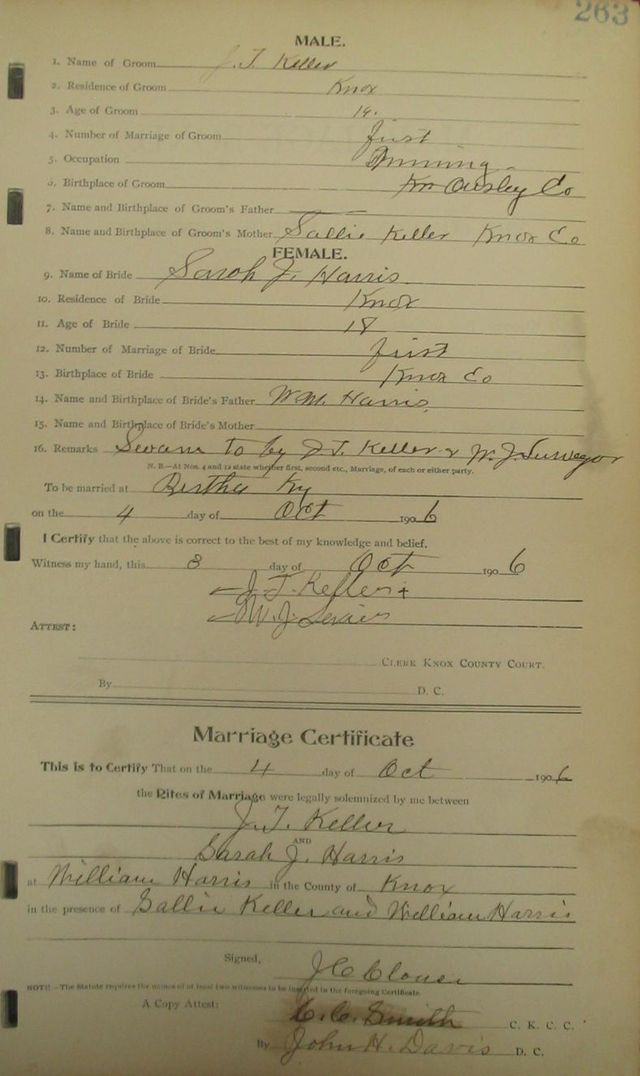 263
MALE.
1. Name of Groom J. T. Keller
2. Residence of Groom Knox
3. Age of Groom 19.
4. Number of Marriage of Groom first
5. Occupation Mining
6. Birthplace of Groom Owsley Co
7. Name and Birthplace of Groom's Father
8. Name and Birthplace of Groom's Mother Sallie Keller Knox Co
FEMALE.
9. Name of Bride Sarah J. Harris
10. Residence of Bride Knox
11. Age of Bride 18
12. Number of Marriage of Bride first
13. Birthplace of Bride Knox Co
14. Name and Birthplace of Bride's Father Wm. Harris.
15. Name and Birthplace of Bride's Mother
16. Remarks Sworn to by J. T. Keller & W. J.
N. B.—At Nos. 4 and 12 state whether first, second etc., Marriage, of each or either party.
To be married at Bertha Ky
on the 4 day of Oct 1906
I Certify that the above is correct to the best of my knowledge and belief.
Witness my hand, this 3 day of Oct 1906
J. T. Keller
W. J.
ATTEST:
CLERK KNOX COUNTY COURT.
By D. C.
Marriage Certificate
This is to Certify That on the 4 day of Oct 1906
the Rites of Marriage were legally solemnized by me between
J. T. Keller
AND
Sarah J. Harris
at William Harris in the County of Knox
in the presence of Sallie Keller and William Harris
Signed,
J C
NOTE!—The Statute requires the names of at least two witnesses to be inserted in the foregoing Certificate.
A Copy Attest: C. C. Smith C. K. C. C.
By John H. Davis D. C.